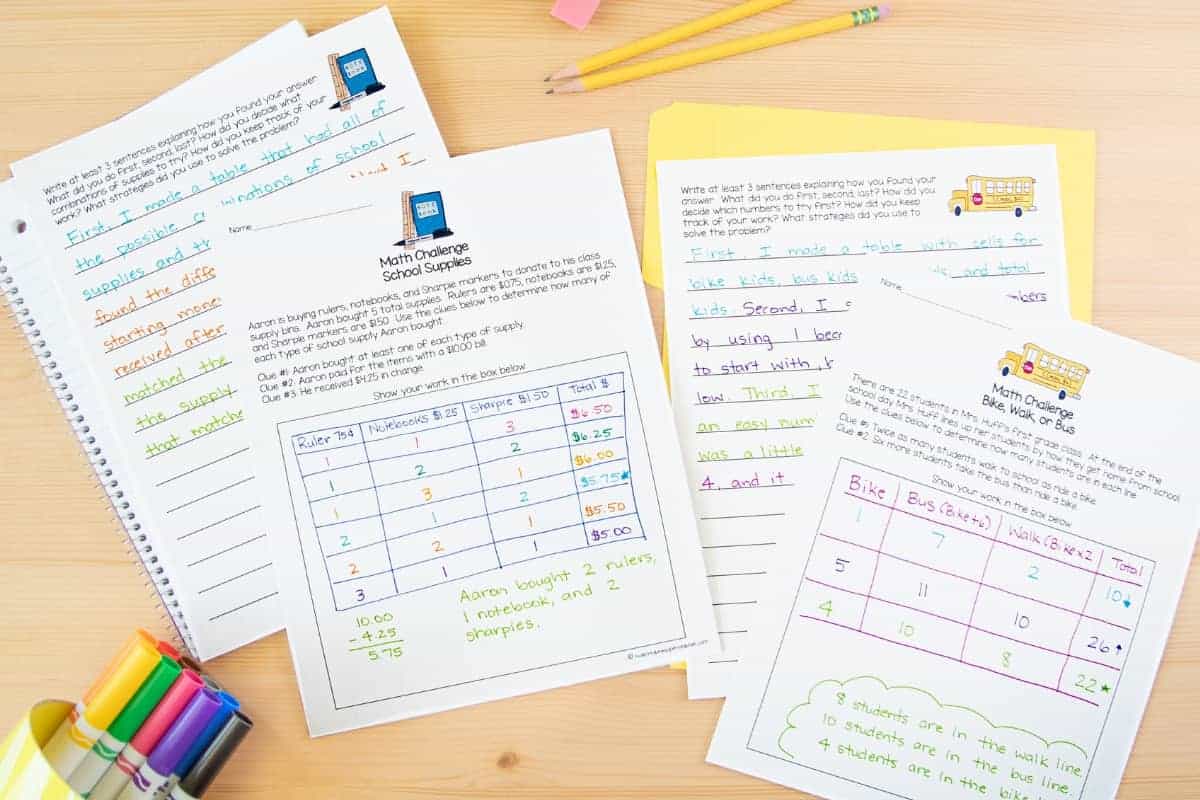 Write at least 3 sentences explaining how you found your answer.
What did you do first, second, last? How did you decide what
combinations of supplies to try? How did you keep track of your
work? What strategies did you use to solve the problem?
NOTE
BOOK
First, I made a table that had all of
the possible
inations of school
supplies and
and I
found the diff
starting mone
received after
matched the
the supply
that matche
Name
NOTE
BOOK
Math Challenge
School Supplies
Aaron is buying rulers, notebooks, and Sharpie markers to donate to his class
supply bins. Aaron bought 5 total supplies. Rulers are $0.75, notebooks are $1.25,
and Sharpie markers are $1.50. Use the clues below to determine how many of
each type of school supply Aaron bought.
Clue #1: Aaron bought at least one of each type of supply.
Clue #2: Aaron paid for the items with a $10.00 bill.
Clue #3: He received $4.25 in change.
Show your work in the box below.
Ruler 75¢ Notebooks $1.25 Sharpie $1.50 Total $
1 1 3 $6.50
1 2 2 $6.25
1 3 1 $6.00
2 1 2 $5.75★
2 2 1 $5.50
3 1 1 $5.00
10.00
- 4.25
5.75
Aaron bought 2 rulers,
1 notebook, and 2
sharpies.
Write at least 3 sentences explaining how you found your
answer. What did you do first, second, last? How did you
decide which numbers to try first? How did you keep
track of your work? What strategies did you use to
solve the problem?
SCHOOL BUS
First, I made a table with cells for
bike kids, bus kids
and total
kids. Second, I
mbers
by using 1 beca
to start with,
low. Third, I
an easy num
was a little
4, and it
Name
Math Challenge
Bike, Walk, or Bus
There are 22 students in Mrs. Huff's first grade class. At the end of the
school day Mrs. Huff lines up her students by how they get home from school.
Use the clues below to determine how many students are in each line.
Clue #1: Twice as many students walk to school as ride a bike.
Clue #2: Six more students take the bus than ride a bike.
Show your work in the box below.
Bike Bus (Bike+6) Walk (Bike x 2 Total
1 7 2 10↓
5 11 10 26↑
4 10 8 22★
8 students are in the walk line.
10 students are in the bus line.
4 students are in the bike